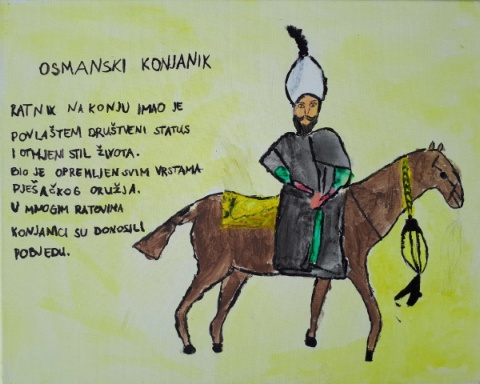 OSMANSKI KONJANIK
RATNIK NA KONJU IMAO JE
POVLAŠTEM DRUŠTVENI STATUS
I OTMJENI STIL ŽIVOTA.
BIO JE OPREMLJEN SVIM VRSTAMA
PJEŠAČKOG ORUŽJA.
U MNOGIM RATOVIMA
KONJANICI SU DONOSILI
POBJEDU.